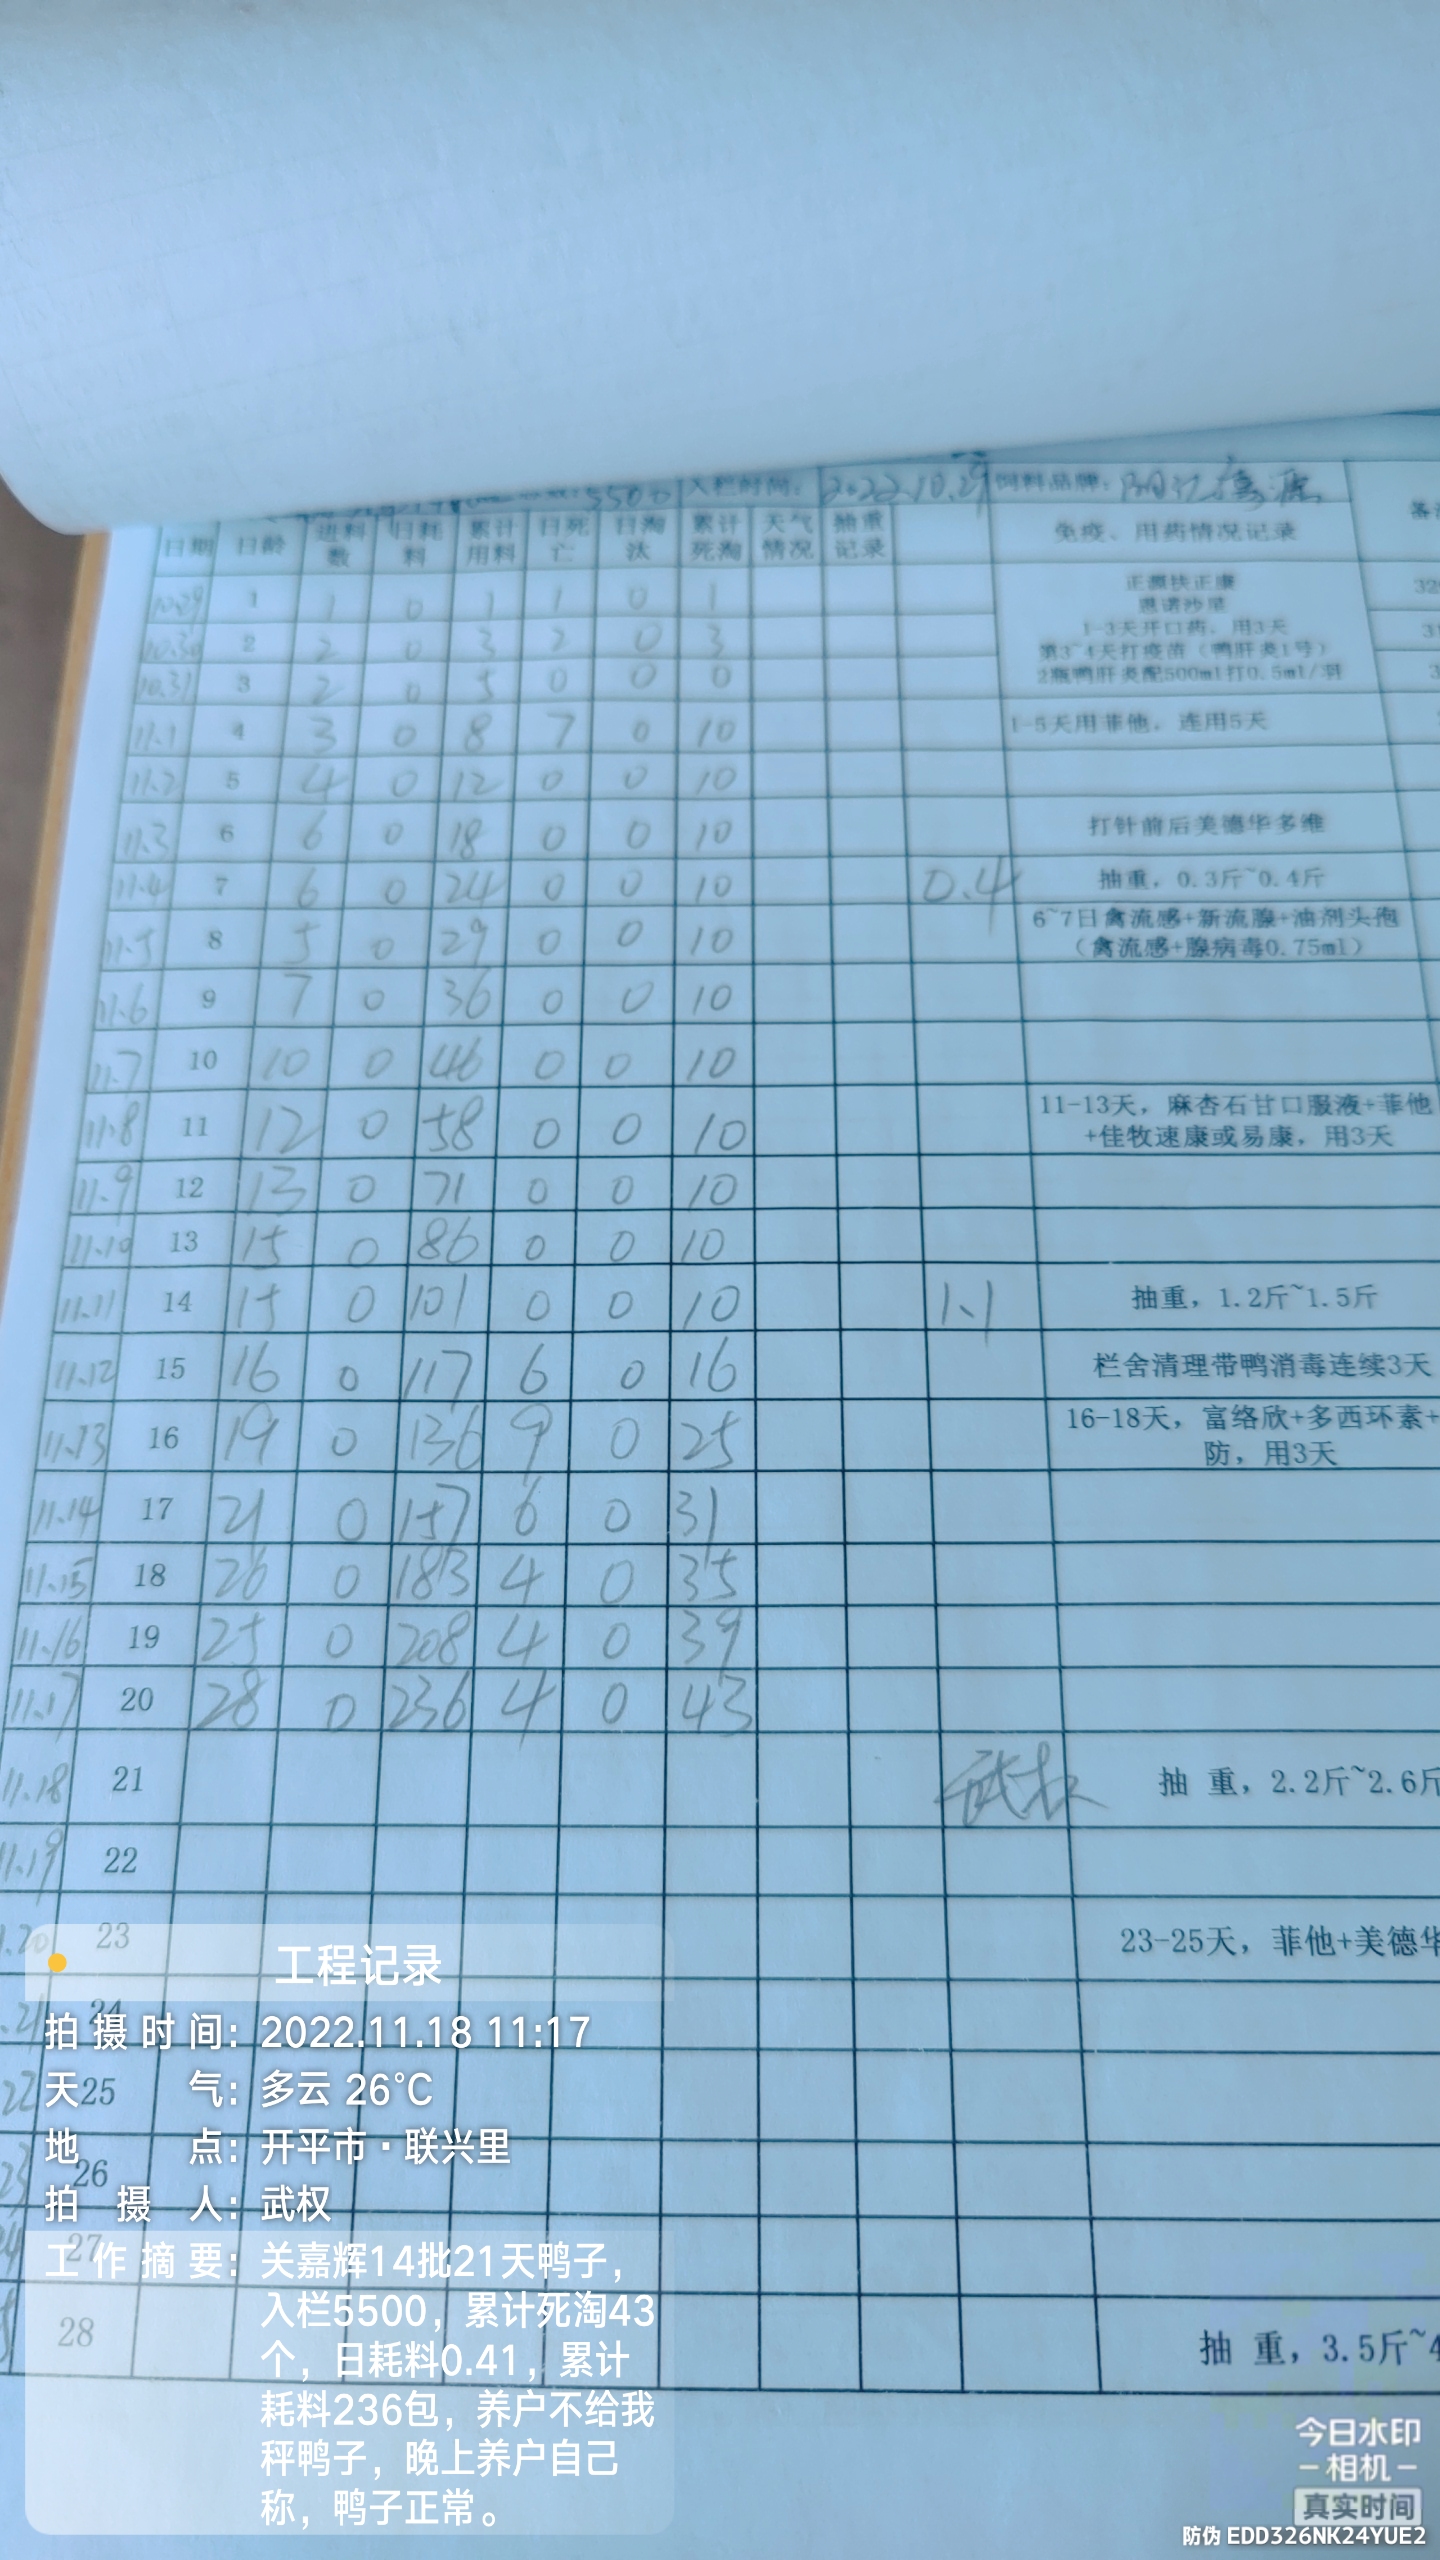 5500 入栏时间: 2022.10.29 饲料品牌:
日期 日龄 进料数 日耗料 累计用料 日死亡 日淘汰 累计死淘 天气情况 抽重记录 免疫、用药情况记录
10.29 1 1 0 1 1 0 1 正源扶正康
10.30 2 2 0 3 2 0 3 1-3天开口药,用3天
第3~4天打疫苗(鸭肝炎1号)
10.31 3 2 0 5 0 0 0 2瓶鸭肝炎配500ml打0.5ml/羽
11.1 4 3 0 8 7 0 10 1-5天用菲他,连用5天
11.2 5 4 0 12 0 0 10
11.3 6 6 0 18 0 0 10 打针前后美德华多维
11.4 7 6 0 24 0 0 10 0.4 抽重,0.3斤~0.4斤
11.5 8 5 0 29 0 0 10 6~7日禽流感+新流腺+油剂头孢
(禽流感+腺病毒0.75ml)
11.6 9 7 0 36 0 0 10
11.7 10 10 0 46 0 0 10
11.8 11 12 0 58 0 0 10 11-13天,麻杏石甘口服液+菲他
+佳牧速康或易康,用3天
11.9 12 13 0 71 0 0 10
11.10 13 15 0 86 0 0 10
11.11 14 15 0 101 0 0 10 1.1 抽重,1.2斤~1.5斤
11.12 15 16 0 117 6 0 16 栏舍清理带鸭消毒连续3天
11.13 16 19 0 136 9 0 25 16-18天,富络欣+多西环素+
防,用3天
11.14 17 21 0 157 6 0 31
11.15 18 26 0 183 4 0 35
11.16 19 25 0 208 4 0 39
11.17 20 28 0 236 4 0 43
11.18 21 武权 抽 重,2.2斤~2.6斤
11.19 22
.20 23 23-25天,菲他+美德华
.21 24
22 25
23 26
24 27
28 抽 重,3.5斤~4
工程记录
拍摄时间: 2022.11.18 11:17
天气: 多云 26℃
地点: 开平市·联兴里
拍摄人: 武权
工作摘要: 关嘉辉14批21天鸭子,
入栏5500,累计死淘43
个,日耗料0.41,累计
耗料236包,养户不给我
秤鸭子,晚上养户自己
称,鸭子正常。
今日水印
相机
真实时间
防伪 EDD326NK24YUE2